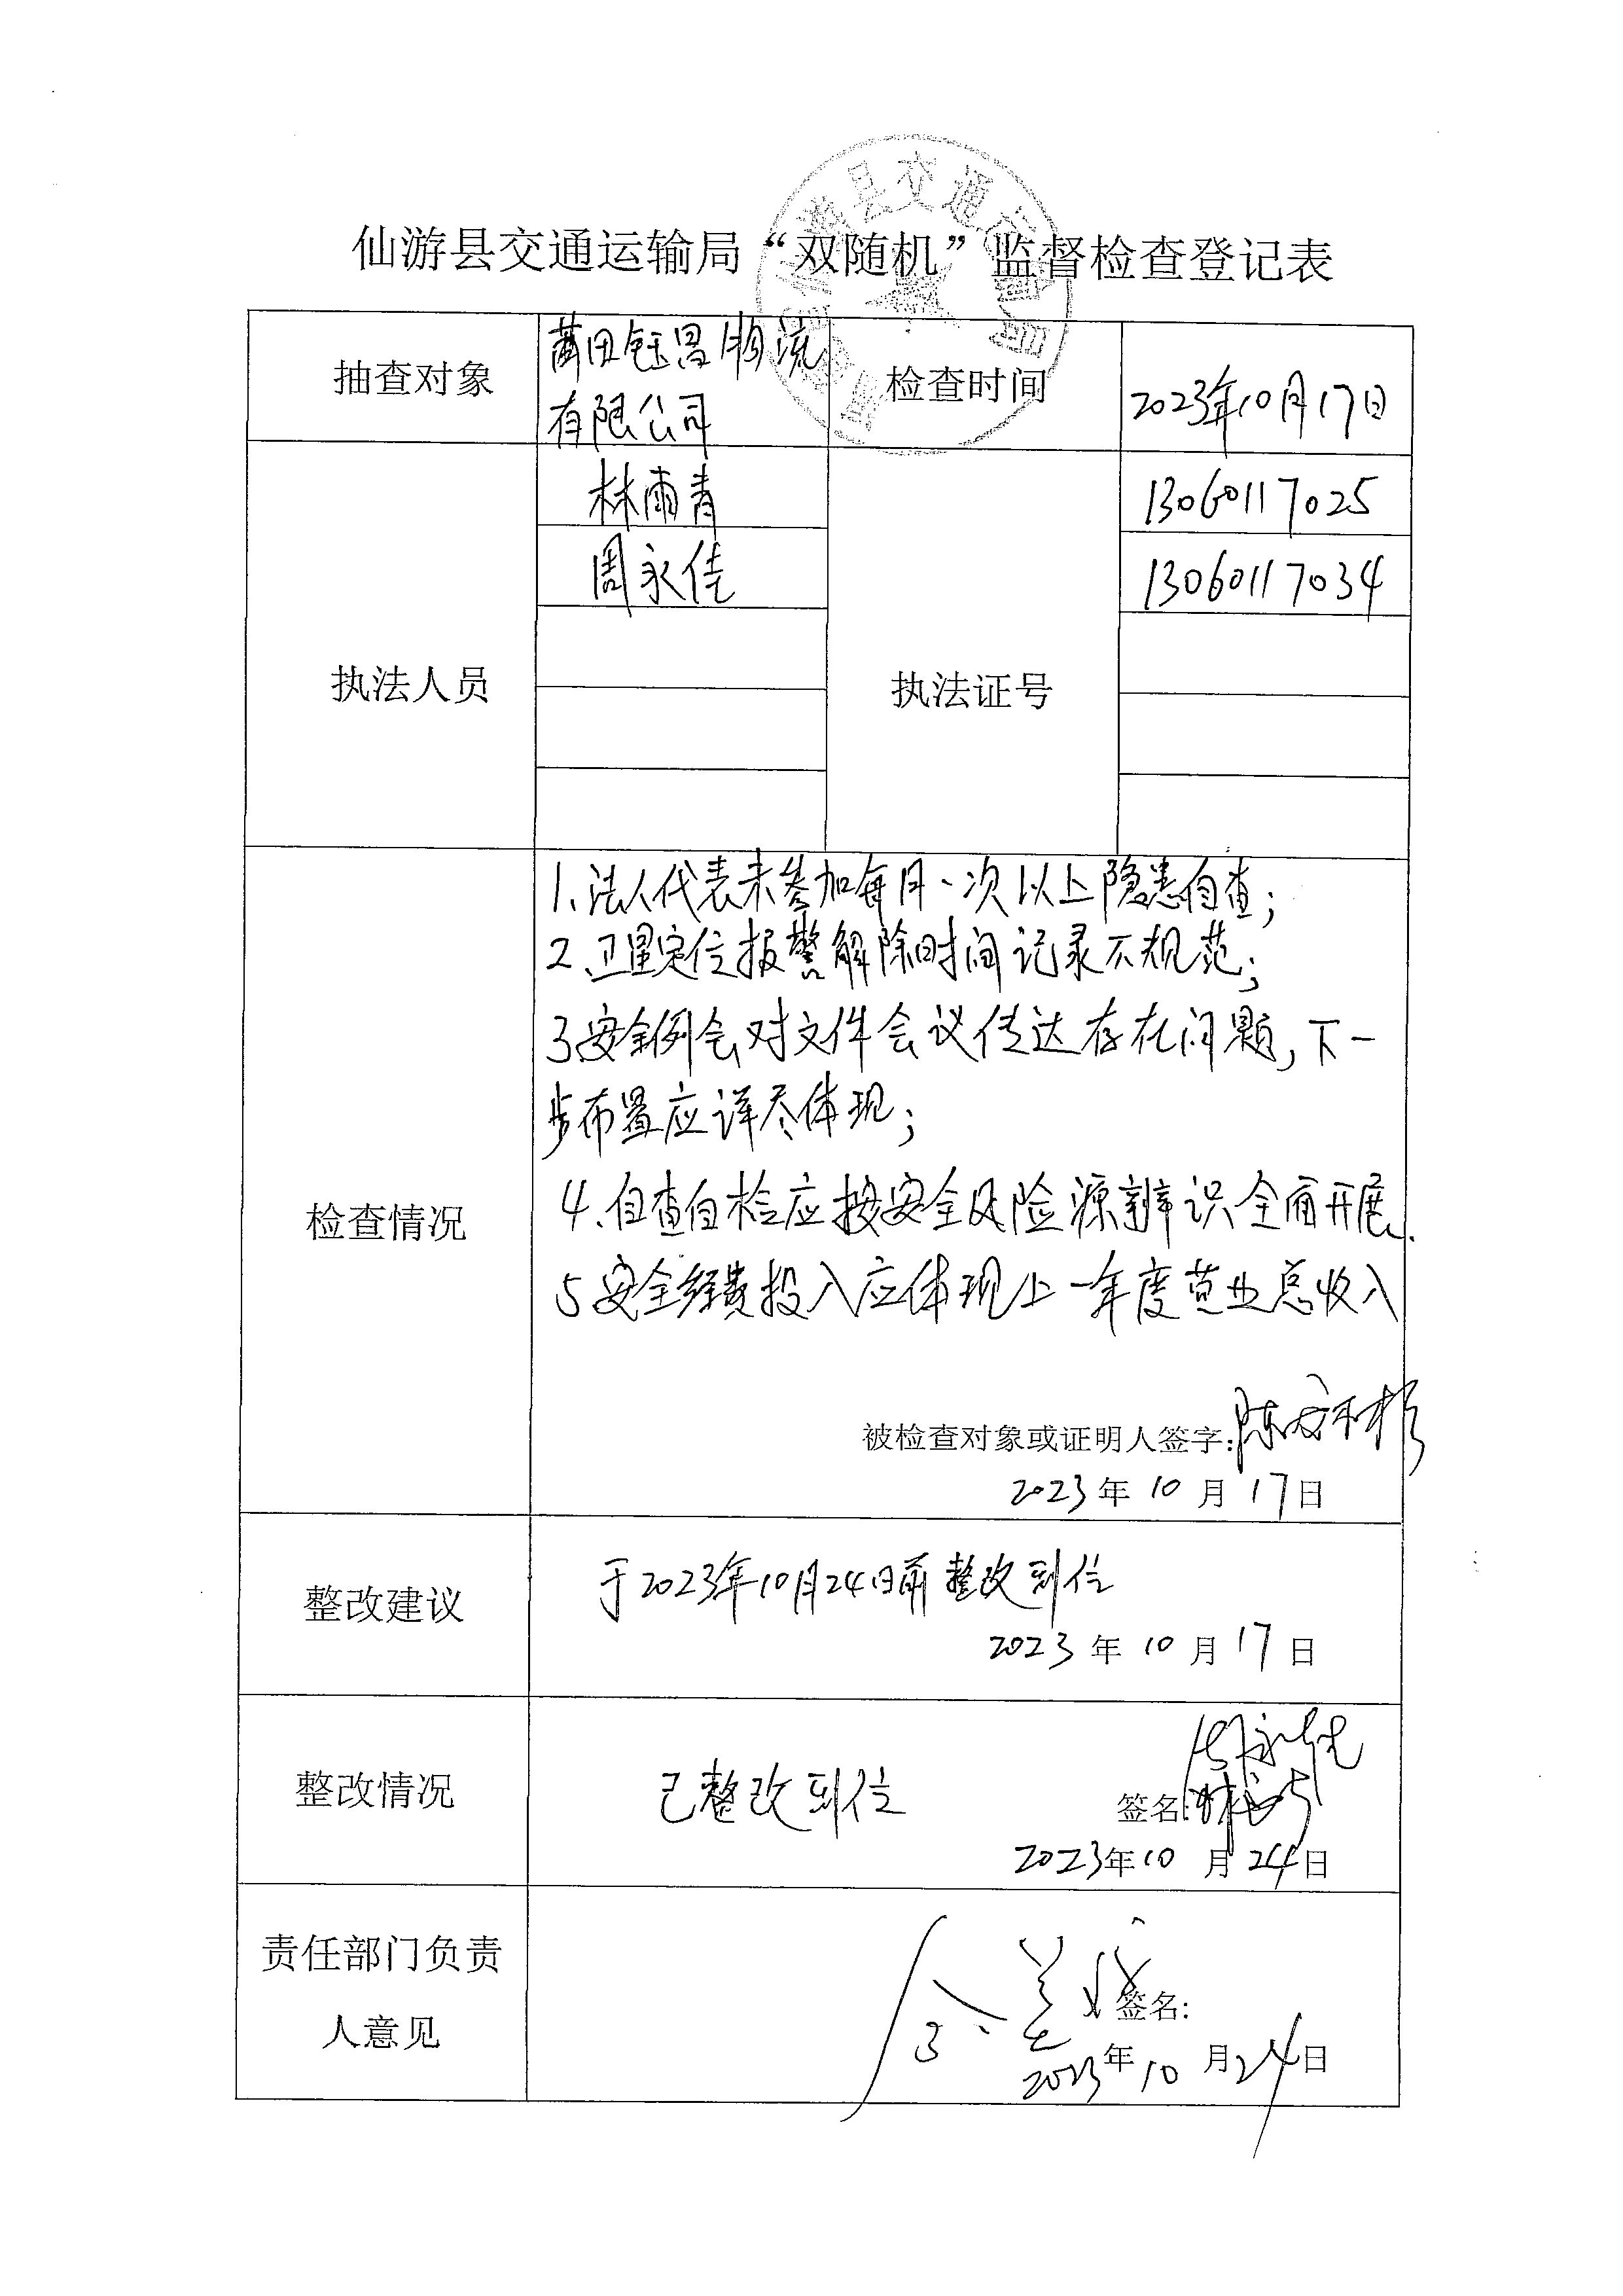 仙游县交通运输局“双随机”监督检查登记表
抽查对象
莆田钰昌物流
有限公司
检查时间
2023年10月17日
执法人员
林雨青
周永佳
执法证号
13060117025
13060117034
检查情况
1、法人代表未参加每月一次以上隐患自查；
2、卫星定位报警解除时间记录不规范；
3安全例会对文件会议传达存在问题，下一
步布置应详尽体现；
4、自查自检应按安全风险源辨识全面开展.
5安全经费投入应体现上一年度营业总收入
被检查对象或证明人签字：
2023年10月17日
整改建议
于2023年10月24日前整改到位
2023年10月17日
整改情况
已整改到位
周永佳
签名：
2023年10月24日
责任部门负责
人意见
签名：
2023年10月24日